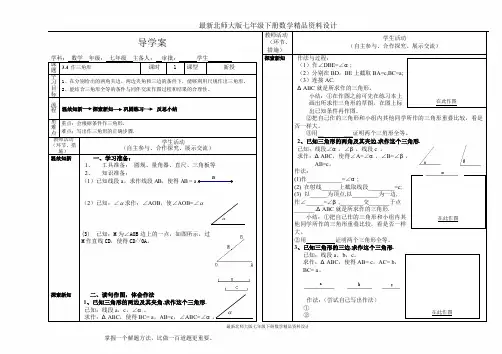 最新北师大版七年级下册数学精品资料设计
导学案
学科：数学 年级：七年级 主备人： 审批： 学生
课题
3.4 作三角形
课时
1
课型
新授
学习目标
1、在分别给出的两角夹边、两边夹角和三边的条件下，能够利用尺规作出三角形。
2、能结合三角形全等的条件与同伴交流作图过程和结果的合理性。
流程
温故知新→探索新知→巩固练习→ 反思小结
重难点
重点：会根据条件作三角形。
难点：写出作三角形的正确步骤。
教师活动（环节、措施）
学生活动
（自主参与、合作探究、展示交流）
温故知新
一、学习准备：
1、 工具准备： 圆规、量角器、直尺、三角板等
2、 知识准备：
（1）已知线段a，求作线段AB，使得AB = a
（2）已知：∠α求作：∠AOB，使∠AOB=∠α
α
(3) 已知：M为∠AOB边上的一点，如图所示，过M作直线CD，使得CD//OA.
B
M
O
A
探索新知
二、读句作图，体会作法
1、已知三角形的两边及其夹角,求作这个三角形.
已知：线段a，c，∠α。
求作：Δ ABC，使得BC= a，AB=c，∠ABC=∠α。
a
c
α
掌握一个解题方法，比做一百道题更重要。
教师活动（环节、措施）
学生活动
（自主参与、合作探究、展示交流）
探索新知
作法与过程：
（1）作∠DBE=∠α；
（2）分别在BD、BE上截取BA=c,BC=a；
（3）连接AC.
Δ ABC就是所求作的三角形。
小结：①在作图之前可先在练习本上画出所求作三角形的草图，在图上标出已知条件再作图。
在此作图
②把自己作的三角形和小组内其他同学所作的三角形重叠比较，看是否一样大。
③用 证明两个三角形全等。
2、已知三角形的两角及其夹边,求作这个三角形.
已知：线段∠α ，∠β ，线段c 。
求作：Δ ABC，使得∠A=∠α ，∠B=∠β ，AB=c。
作法：
(1)作 =∠α；
(2) 在射线 上截取线段 =c;
(3) 以 为顶点，以 为一边，作∠ =∠β， 交 于点
Δ ABC就是所求作的三角形.
小结：①把自己作的三角形和小组内其他同学所作的三角形重叠比较，看是否一样大。
在此作图
②用 证明两个三角形全等。
3、已知三角形的三边,求作这个三角形.
已知：线段a，b，c。
求作：Δ ABC，使得AB= c，AC= b，BC= a。
作法：（尝试自己写出作法）
①
②
在此作图
最新北师大版七年级下册数学精品资料设计